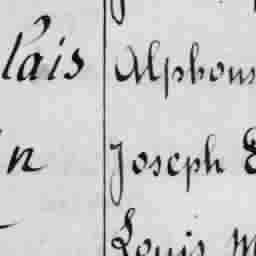 lais Alphons
in Joseph E
Louis M